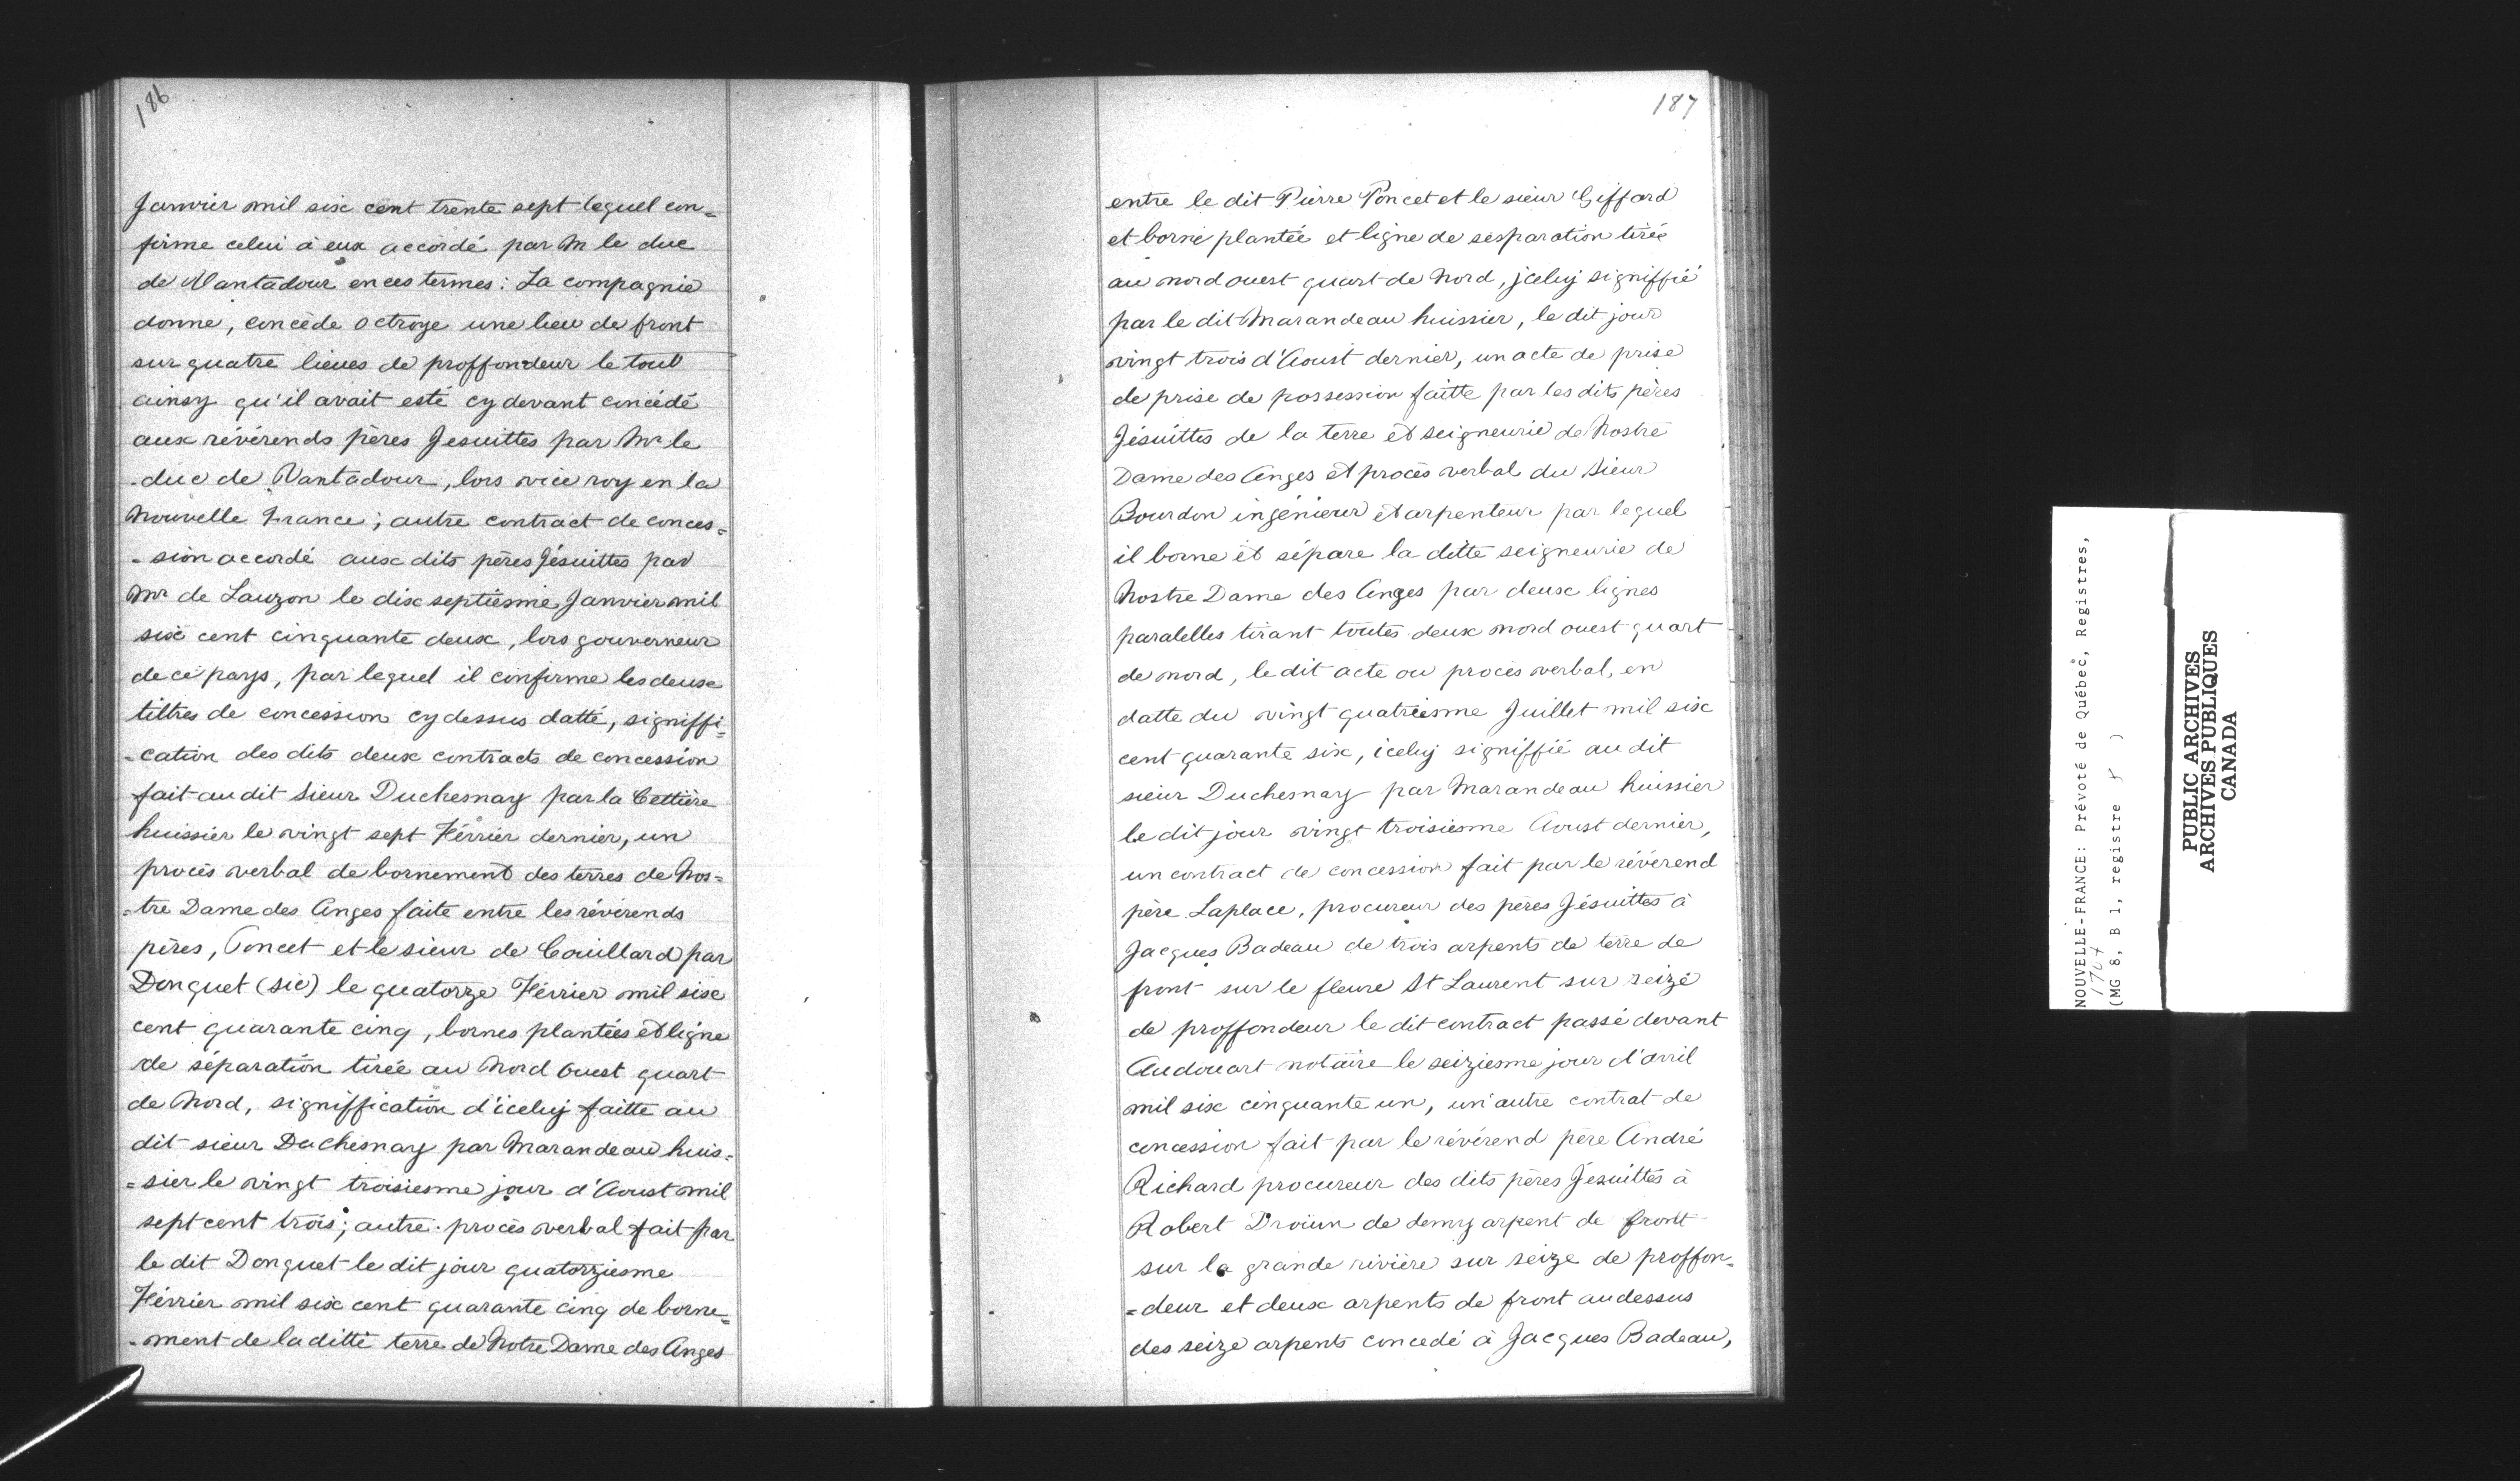 186
Janvier mil six cent trente sept lequel con=
firme celui à eux accordé par M le duc
de Vantadour en ces termes: La compagnie
donne, concède octroye une lieu de front
sur quatre lieues de proffondeur le tout
ainsy qu'il avait esté cy devant concédé
aux révérends pères Jesuittes par Mr le
duc de Vantadour, lors vice roy en la
Nouvelle France; autre contract de conces=
=sion accordé aux dits pères Jésuittes par
Mr de Lauzon le dix septiesme Janvier mil
six cent cinquante deux, lors gouverneur
de ce pays, par lequel il confirme les deux
tiltres de concession cy dessus datté, signiffi=
=cation des dits deux contracts de concession
fait au dit sieur Duchesnay par la Cettière
huissier le vingt sept Février dernier, un
procès verbal de bornement des terres de Nos=
=tre Dame des Anges faite entre les révérends
pères, Poncet et le sieur de Couillard par
Donquet (sic) le quatorze Février mil six
cent quarante cinq, bornes plantées et ligne
de séparation tirée au Nord Ouest quart
de Nord, signiffication d'iceluy faitte au
dit sieur Duchesnay par Marandeau huis=
=sier le vingt troisiesme jour d'Aoust mil
sept cent trois; autre procès verbal fait par
le dit Donquet le dit jour quatorziesme
Février mil six cent quarante cinq de borne=
=ment de la ditte terre de Notre Dame des Anges
187
entre le dit Pierre Poncet et le sieur Giffard
et borne plantée et ligne de sesparation tirée
au nord ouest quart de Nord, jceluy signiffié
par le dit Marandeau huissier, le dit jour
vingt trois d'Aoust dernier, un acte de prise
de prise de possession faitte par les dits pères
Jésuittes de la terre et seigneurie de Nostre
Dame des Anges et procès verbal du Sieur
Bourdon ingénieur et arpenteur par lequel
il borne et sépare la ditte seigneurie de
Nostre Dame des Anges par deux lignes
paralelles tirant toutes deux nord ouest quart
de nord, le dit acte ou procès verbal, en
datte du vingt quatriesme Juillet mil six
cent quarante six, iceluy signiffié au dit
sieur Duchesnay par Marandeau huissier
le dit jour vingt troisiesme Aoust dernier,
un contract de concession fait par le révérend
père Laplace, procureur des pères Jésuittes à
Jacques Badeau de trois arpents de terre de
front sur le fleuve St Laurent sur seize
de proffondeur le dit contract passé devant
Audouart notaire le seiziesme jour d'avril
mil six cinquante un, un autre contrat de
concession fait par le révérend père André
Richard procureur des dits pères Jésuittes à
Robert Drouin de demy arpent de front
sur la grande rivière sur seize de proffon=
=deur et deux arpents de front au dessus
des seize arpents concedé à Jacques Badeau,
NOUVELLE-FRANCE: Prévoté de Québec, Registres,
(MG 8, B 1, registre )
PUBLIC ARCHIVES
ARCHIVES PUBLIQUES
CANADA